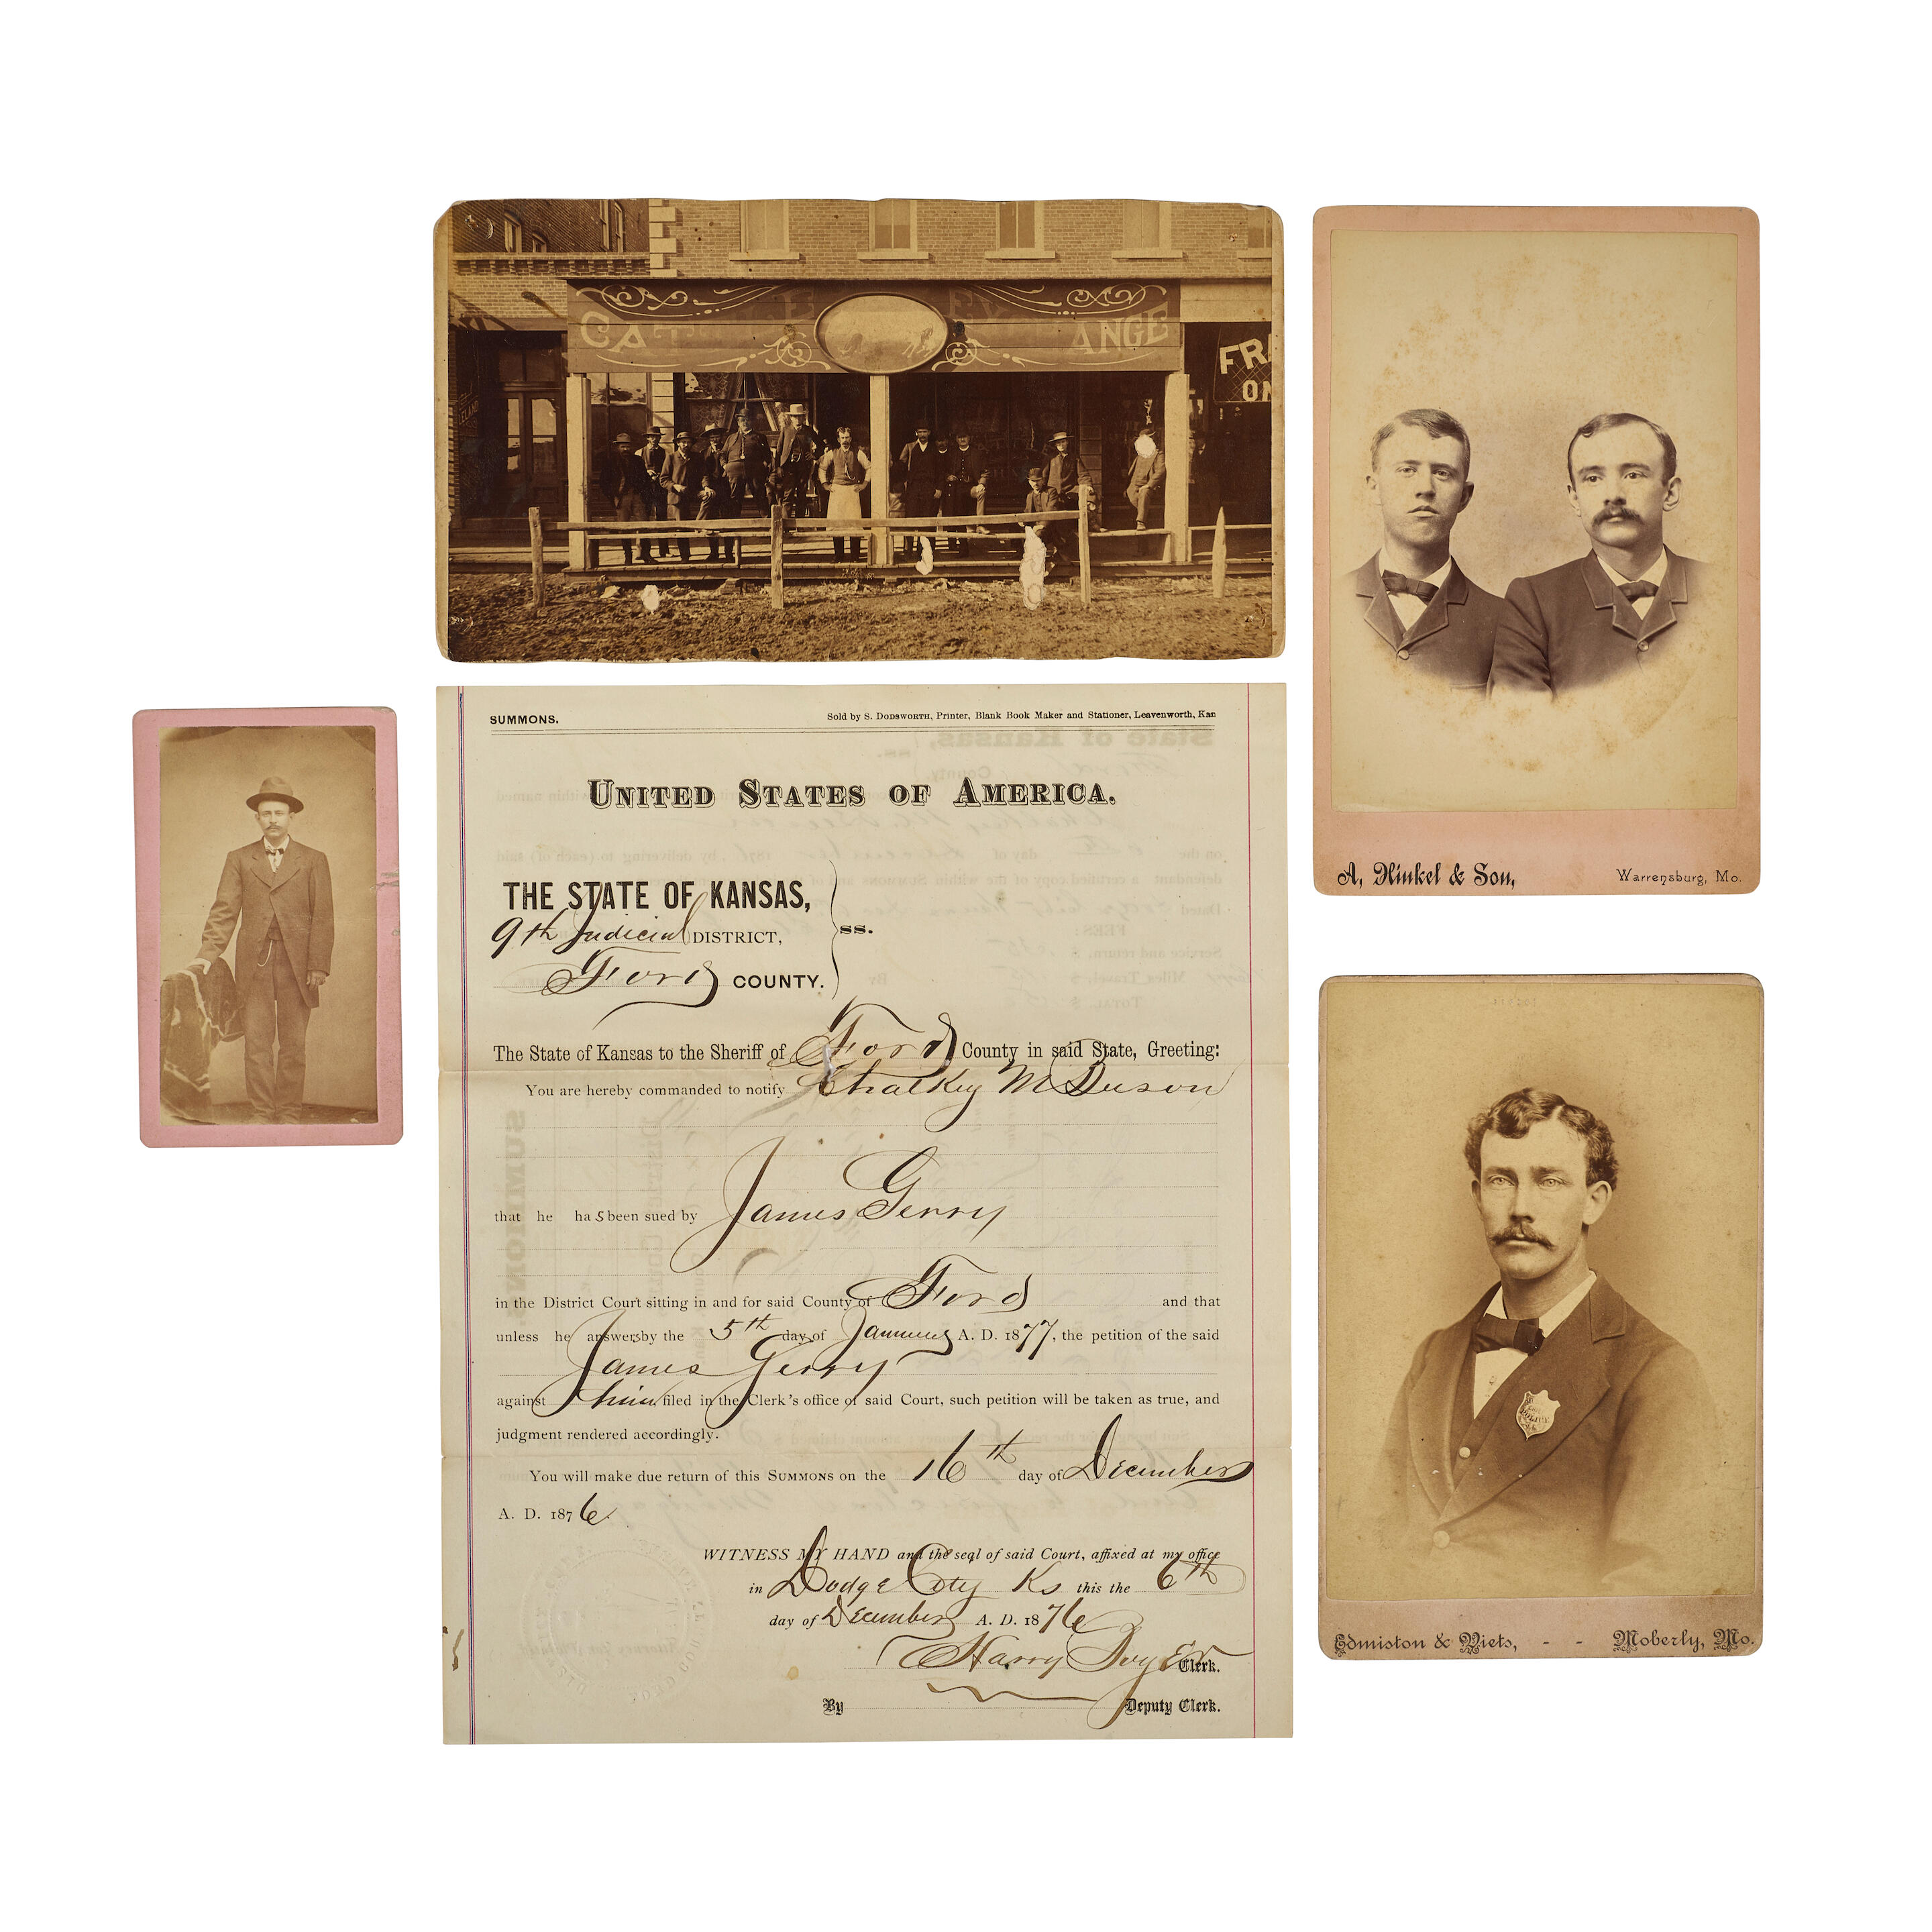 CAT ANGE
FRA
ON
A. Hinkel & Son, Warrensburg, Mo.
SUMMONS. Sold by S. DODSWORTH, Printer, Blank Book Maker and Stationer, Leavenworth, Kan
UNITED STATES OF AMERICA.
THE STATE OF KANSAS,
9th Judicial DISTRICT, ss.
Ford COUNTY.
The State of Kansas to the Sheriff of Ford County in said State, Greeting:
You are hereby commanded to notify Chalkey M Beeson
that he has been sued by James Gerry
in the District Court sitting in and for said County of Ford and that
unless he answers by the 5th day of January A. D. 1877, the petition of the said
James Gerry
against him filed in the Clerk's office of said Court, such petition will be taken as true, and
judgment rendered accordingly.
You will make due return of this SUMMONS on the 16th day of December
A. D. 1876.
WITNESS MY HAND and the seal of said Court, affixed at my office
in Dodge City Ks this the 6th
day of December A. D. 1876
Harry Clerk.
By Deputy Clerk.
POLICE
Edmiston & Viets, - - Moberly, Mo.